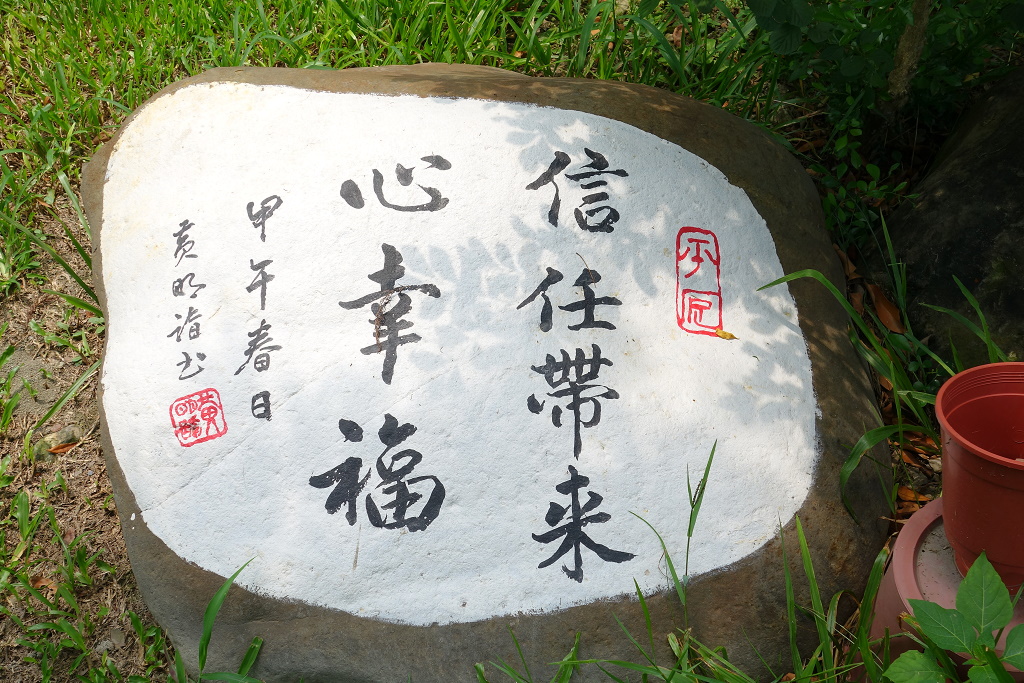 信任帶來
心幸福
甲午春日
黃明諧书